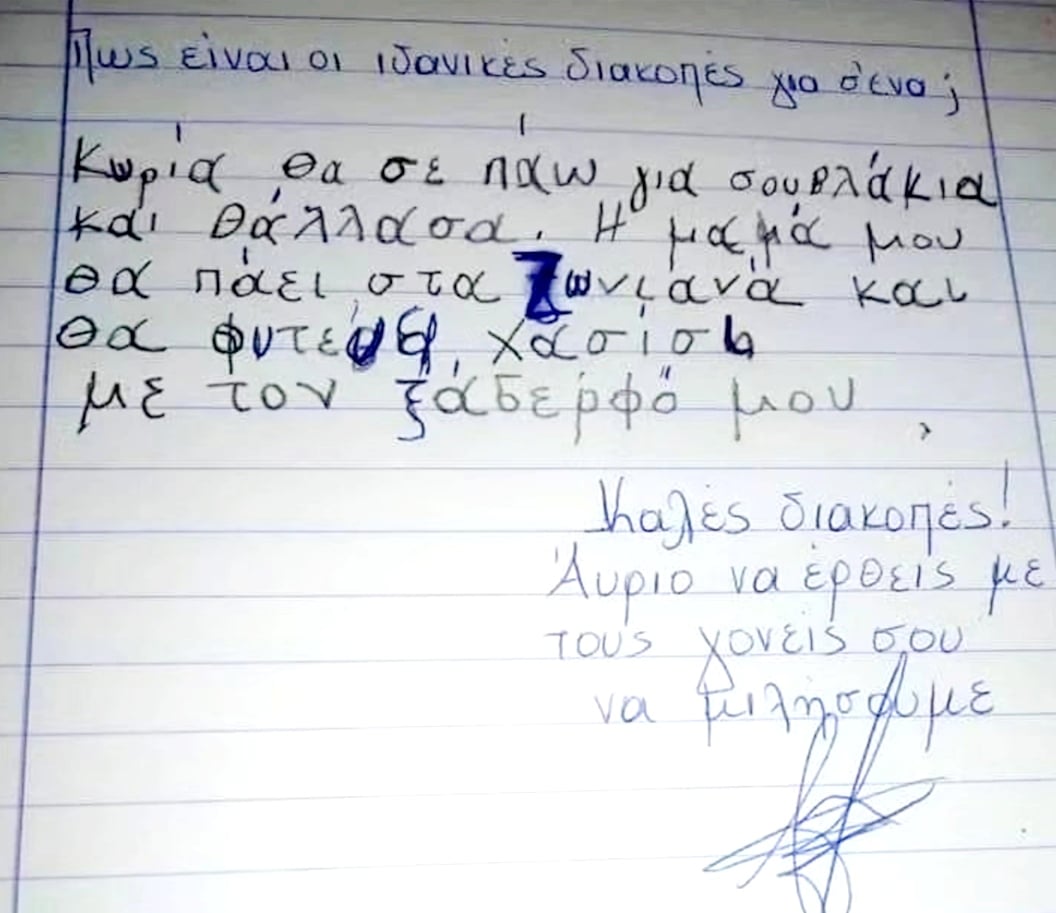 Πως είναι οι ιδανικές διακοπές για σένα;
Κωρία θα σε πάω για σουβλάκια
και θάλλασα. Η μαμά μου
θα πάει στα Ζωνιανά και
θα φυτέψει χασίσι
με τον ξάδερφό μου,
Καλές διακοπές!
Άυριο να έρθεις με
τους γονείς σου
να μιλήσουμε